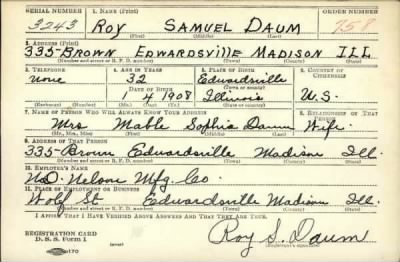 SERIAL NUMBER 1. NAME (Print) ORDER NUMBER
3243 ROY SAMUEL DAUM 758
(First) (Middle) (Last)
2. ADDRESS (Print)
335-BROWN EDWARDSVILLE MADISON ILL
(Number and street or R. F. D. number) (Town) (County) (State)
3. TELEPHONE 4. AGE IN YEARS 5. PLACE OF BIRTH 6. COUNTRY OF CITIZENSHIP
none 32 Edwardsville
DATE OF BIRTH (Town or county)
1 4 1908 Illinois U.S.
(Exchange) (Number) (Mo.) (Day) (Yr.) (State or country)
7. NAME OF PERSON WHO WILL ALWAYS KNOW YOUR ADDRESS 8. RELATIONSHIP OF THAT PERSON
Mrs Mable Sophia Daum Wife
(Mr., Mrs., Miss) (First) (Middle) (Last)
9. ADDRESS OF THAT PERSON
335-Brown Edwardsville Madison Ill.
(Number and street or R. F. D. number) (Town) (County) (State)
10. EMPLOYER'S NAME
N.O. Nelson Mfg. Co.
11. PLACE OF EMPLOYMENT OR BUSINESS
Wolf St Edwardsville Madison Ill.
(Number and street or R. F. D. number) (Town) (County) (State)
I AFFIRM THAT I HAVE VERIFIED ABOVE ANSWERS AND THAT THEY ARE TRUE.
REGISTRATION CARD
D. S. S. Form 1 Roy S. Daum
(Registrant's signature)